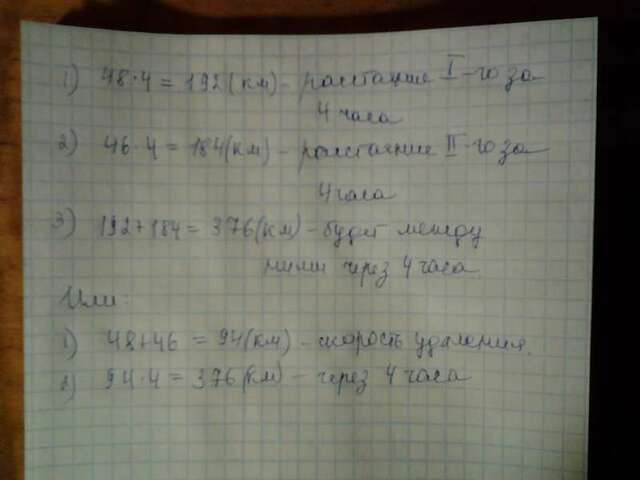 1) 48·4 = 192 (км) - расстояние I-го за
4 часа
2) 46·4 = 184 (км) - расстояние II-го за
4 часа
3) 192+184 = 376 (км) - будет между
ними через 4 часа.
Или:
1) 48+46 = 94 (км) - скорость удаления.
2) 94·4 = 376 (км) - через 4 часа